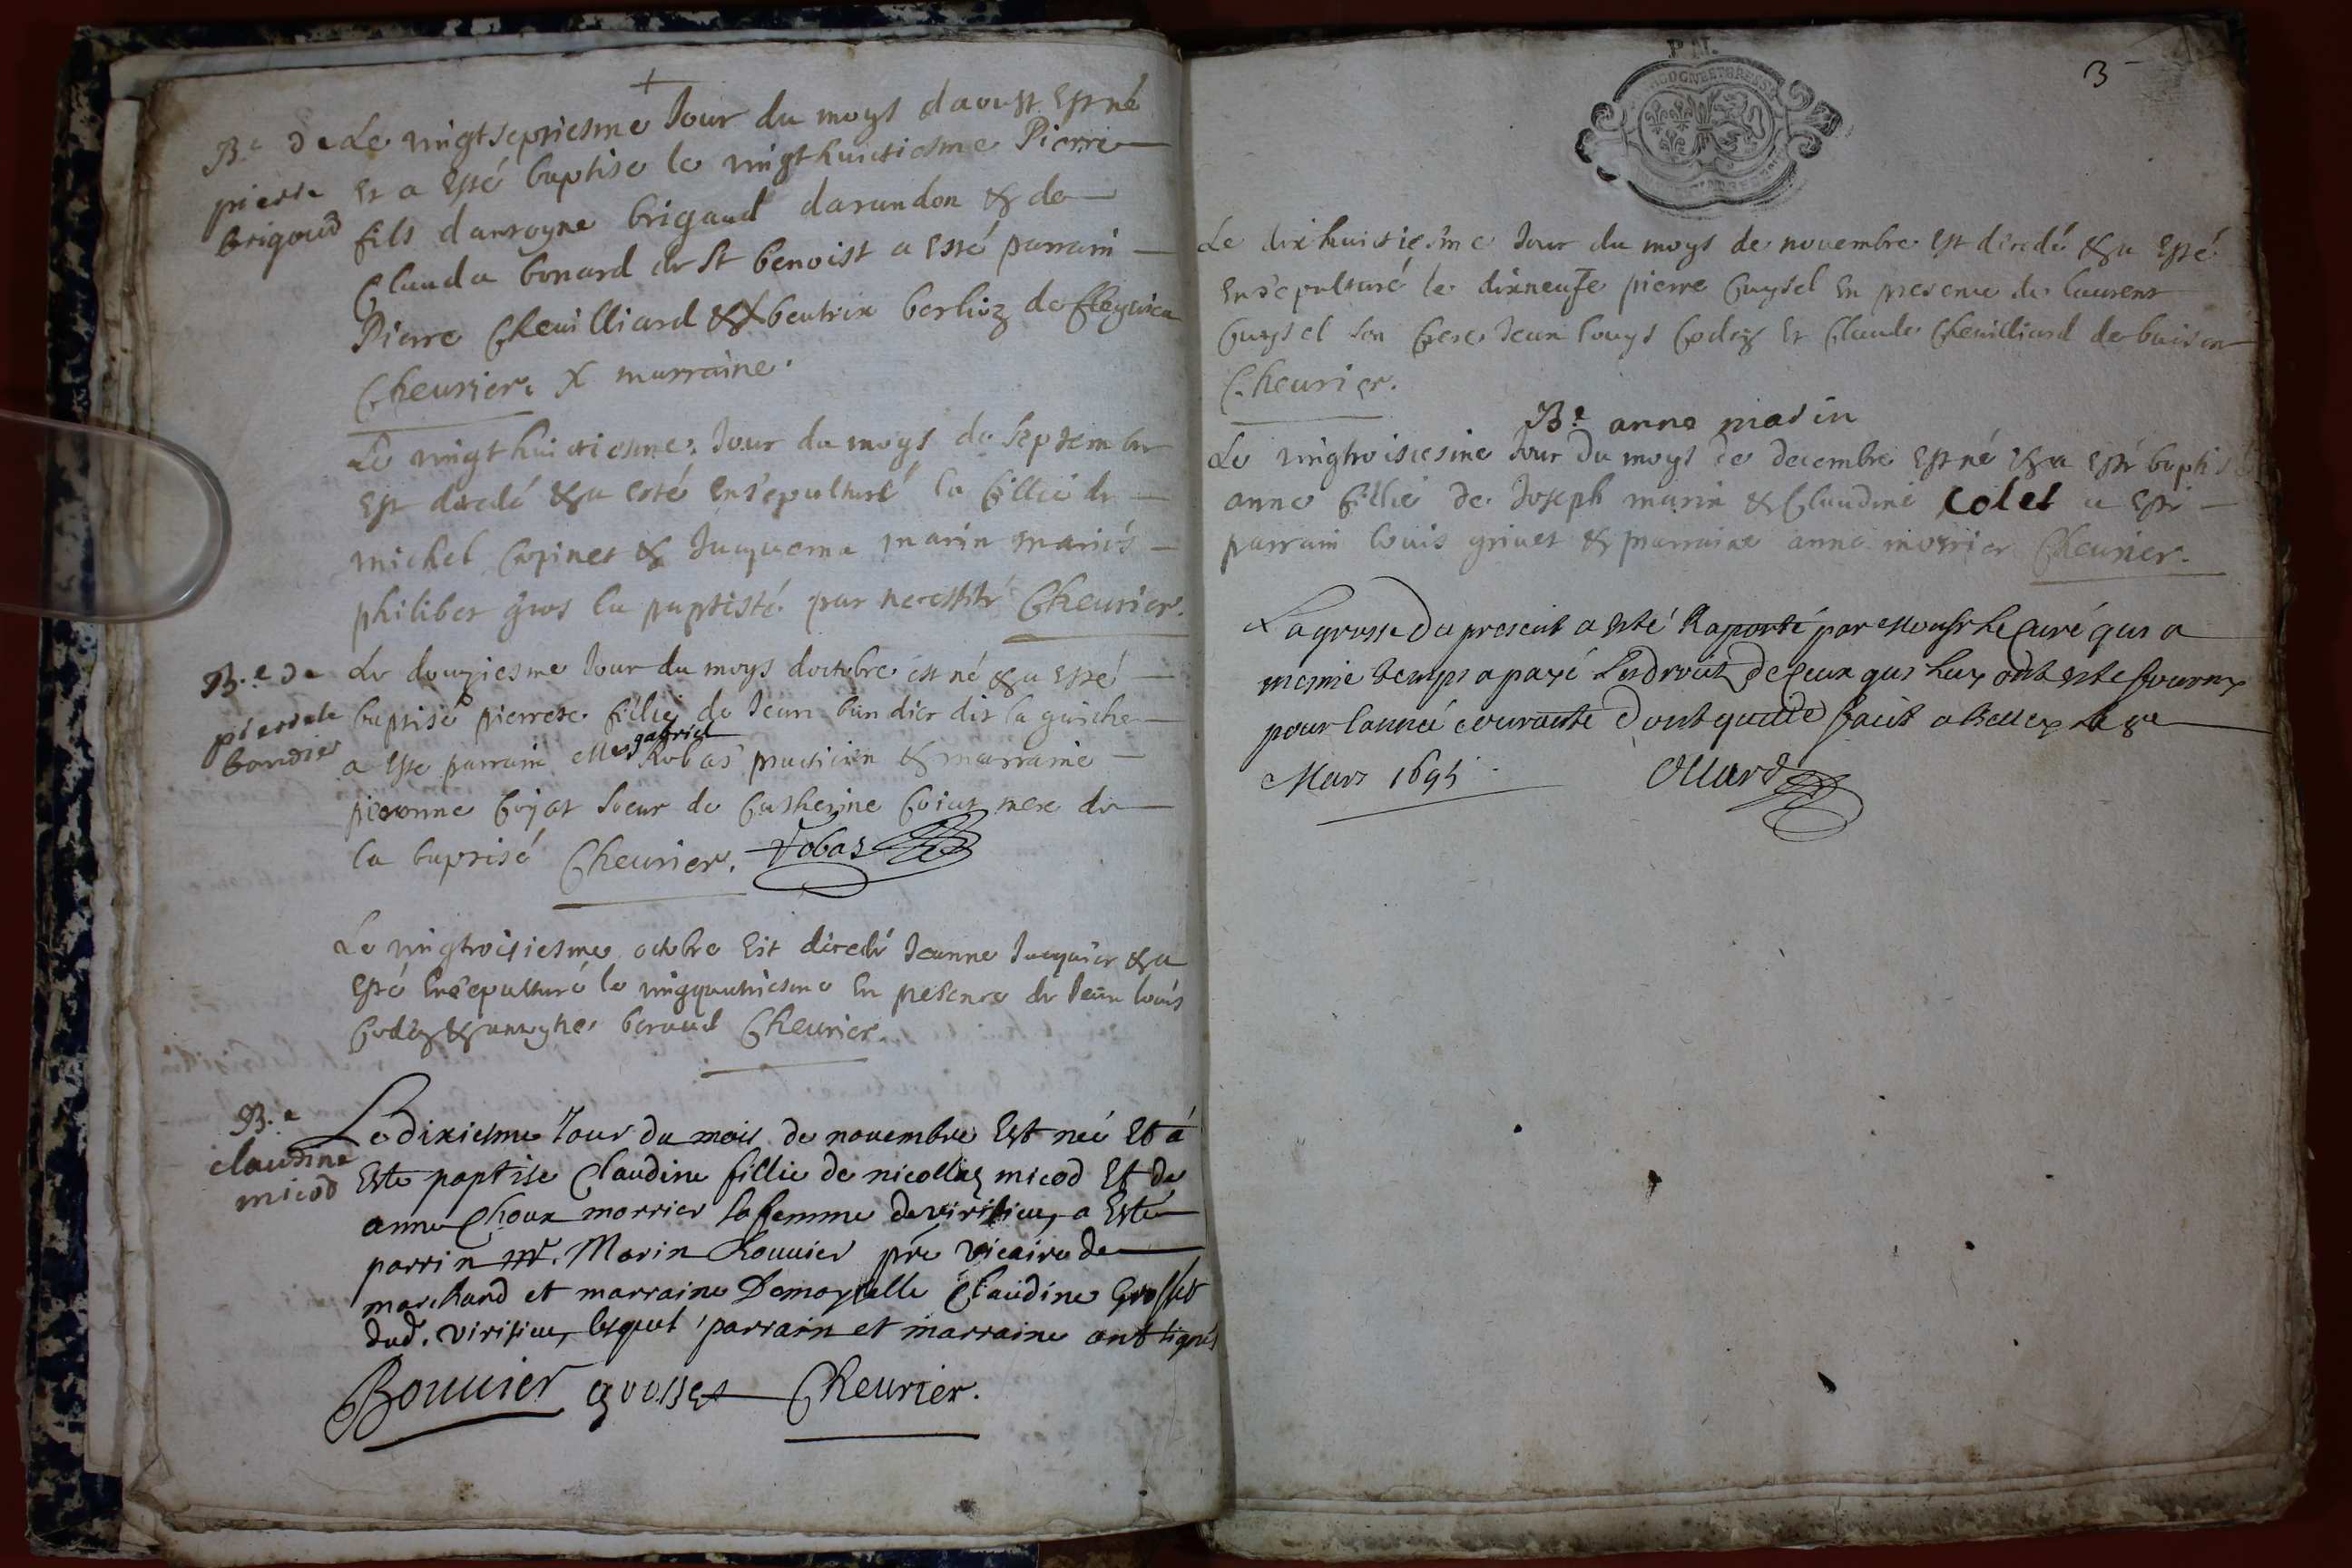 B.e de
pierre
brigoud
Le vingtseptiesme Jour du moys daoust Est né
Et a Esté baptise le vingthuictiesme Pierre
fils dantoyne brigaud darandon & de
Clauda bonard de St benoist a Esté parrain
Pierre Cheuilliard & beatrix berlioz de
Cheurier. X marraine.
Le vingthuictiesme Jour du moys de Septembre
Est decedé & a esté Ensepulturé la fillie de
michel & Jaquema marin mariés
philiber gros la paptisté par necessité Cheurier.
B.e de
pierrete
bondier
Le douziesme Jour du moys doctobre est né & a Esté
baptisé pierrete fillie de Jean bandier dit la guiche
a Esté parrain Me gabriel Robas praticien & marraine
pieronne Gojat Soeur de Catherine Gojat mere de
la baptisé Cheurier. Robas
Le vingtroisiesme octobre Est decedé Jeanne Jaquier & a
Esté Ensepulturé le vingquatriesme En presence de Jean louis
Godez & antoyne beraud Cheurier.
B.e
claudine
micod
Le dixiesme Jour du mois de nouembre Est neé Et á
Este paptise Claudine fillie de nicollas micod Et de
anne Choux morrier sa femme de virisieu, a Este
parrin mr. Marin Bouuier pre vicaire de
marchand et marraine Damoyselle Claudine Grosset
dud. virisieu, lesquel parrain et marraine ont signés
Bouuier grosset Cheurier.
3
Le dixhuictiesme Jour du moys de nouembre Est decedé & a Esté
Ensepulturé le dixneufe pierre Guysel En presence de laurent
Guysel son frere Jean louys Godez Et Claude Cheuilliard de
Cheurier.
B.e anne marin
Le vingtroisiesme Jour du moys de decembre Est né & a Esté baptisé
anne fillie de Joseph marin & Claudine colet a Esté
parrain louis griuet & marraine anne morrier Cheurier.
La grosse du present a esté Raporté par Monsr le Curé qui a
mesme temps a payé les droits de Ceux qui luy ont esté fourny
pour lannée courante dont quitte fait a Belley le
Mars 1695